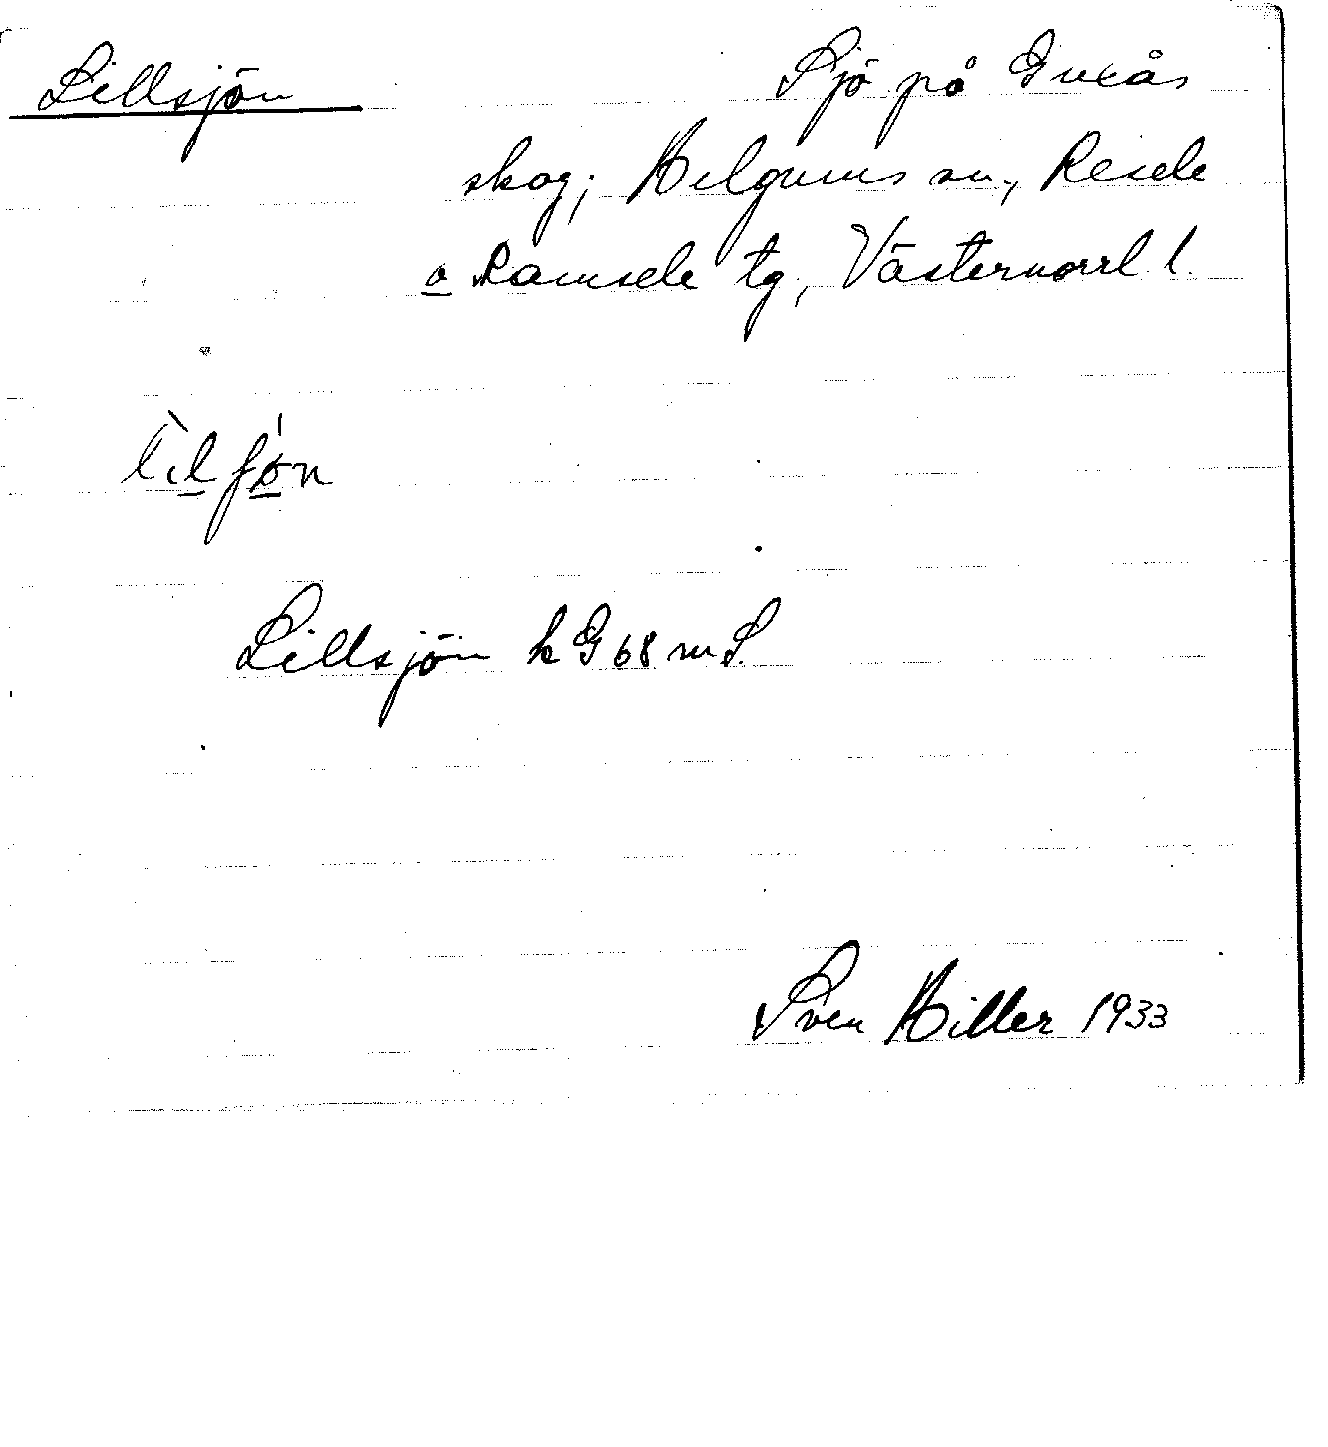 Lillsjön
Sjö på Guxås
skog; Helgums sn, Resele
o Ramsele tg, Västernorrl l.
Lillsjön k G 68 m S.
Sven Hiller 1933